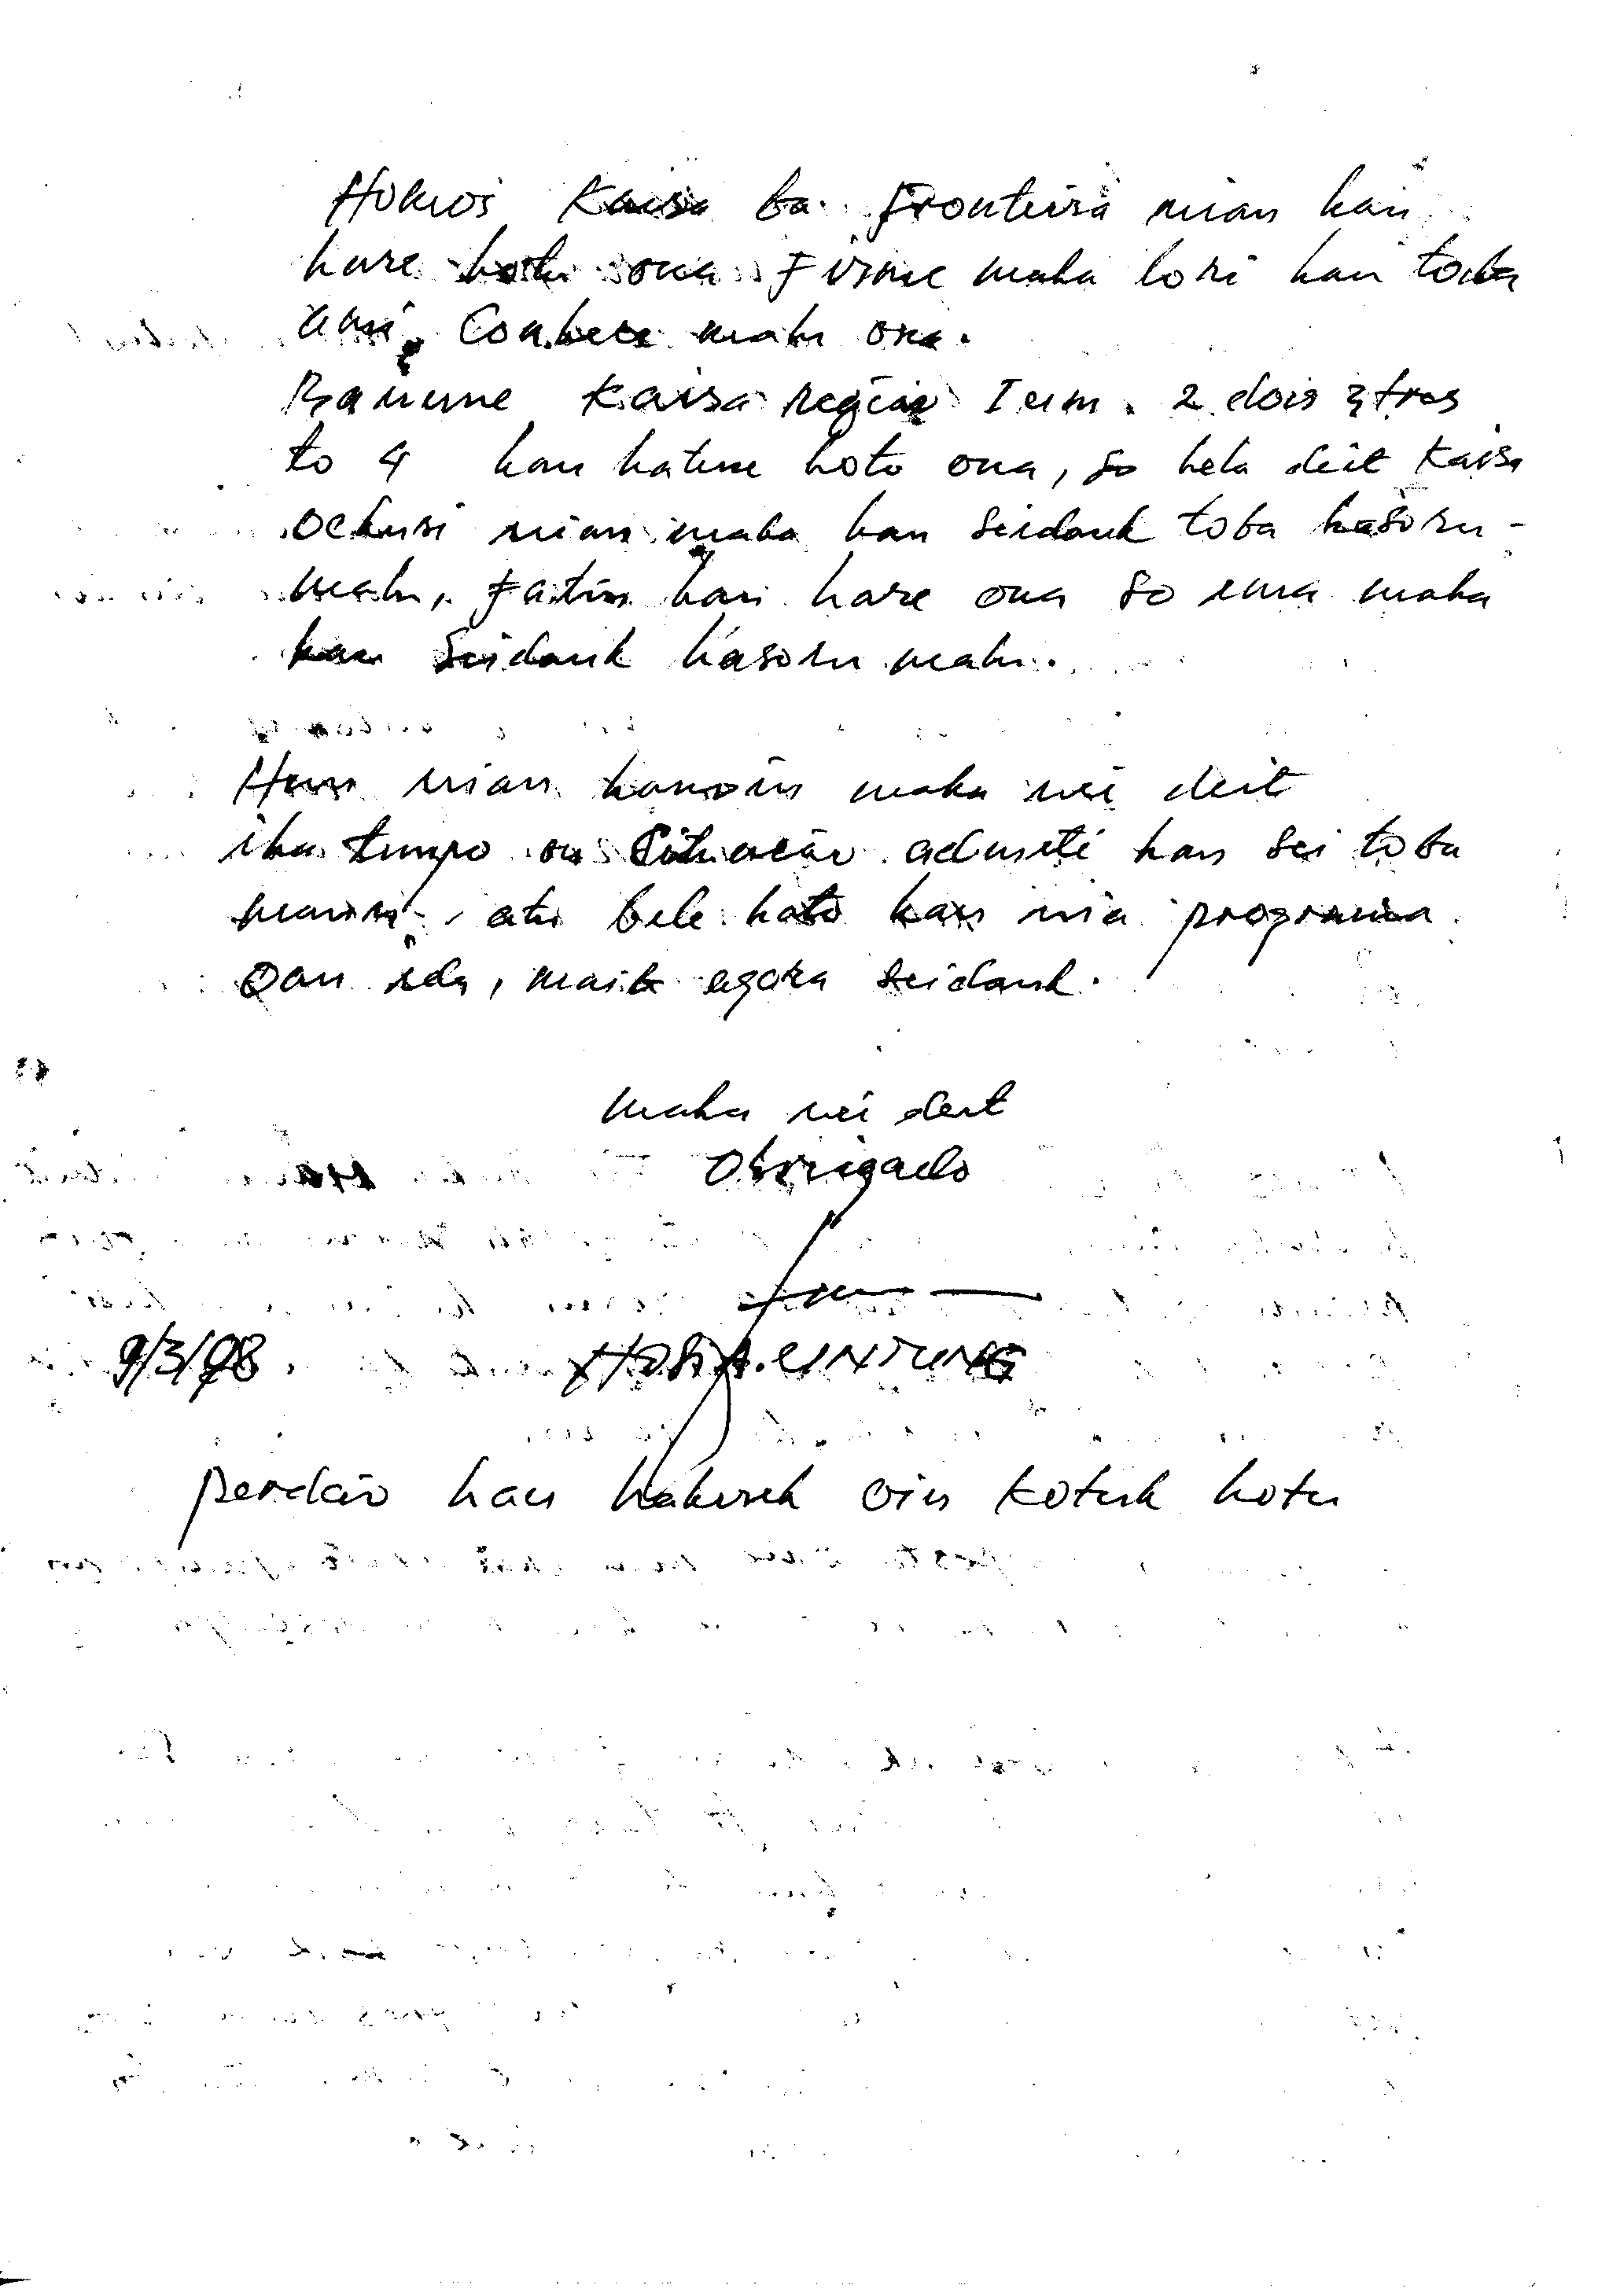 Hokios Kaisa ba fronteira nian hau
hare hotu ona Firme maka lori hau toba
ami, Conbece malu ona.
Banume Kaisa região I um. 2 dois 3 tres
to 4 hau hatene hoto ona, so hela deit Kaisa
ockusi nian maka hau seidauk toba hasoru-
malu, Fatin hau hare ona so ema maka
hau seidauk hasoru malu.
Hau nian hanoin maka nei deit
iha tempo ou situacão admiti hau sei toba
atu bele hato hau nia programa
oan ida, maib agora seidauk.
maka nei deit
Obrigado
9/3/98
perdão hau hakerek oin kotuk hotu